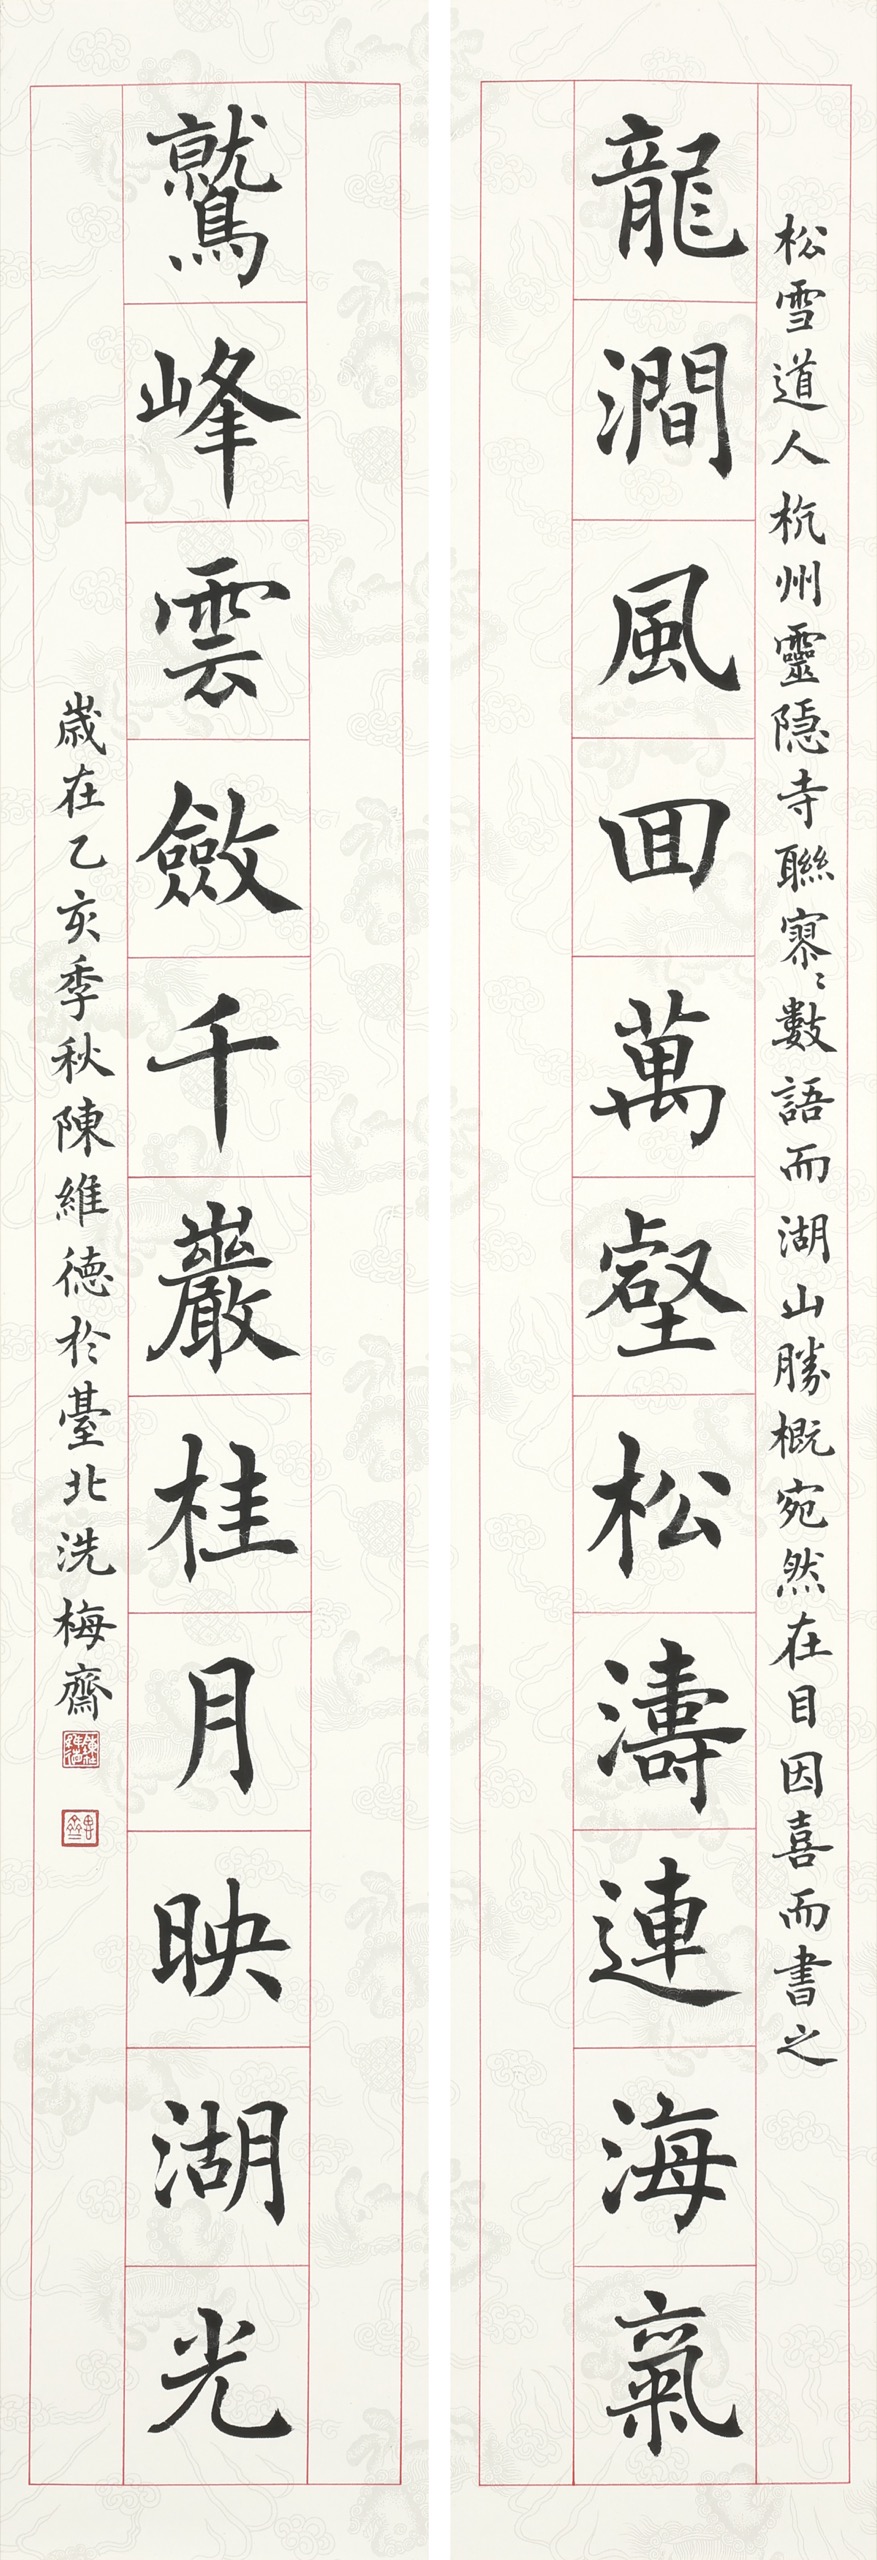 松雪道人杭州靈隱寺聯寥〻數語而湖山勝概宛然在目因喜而書之
龍澗風回萬壑松濤連海氣
鷲峰雲斂千巖桂月映湖光
歲在乙亥季秋陳維德於臺北洗梅齋